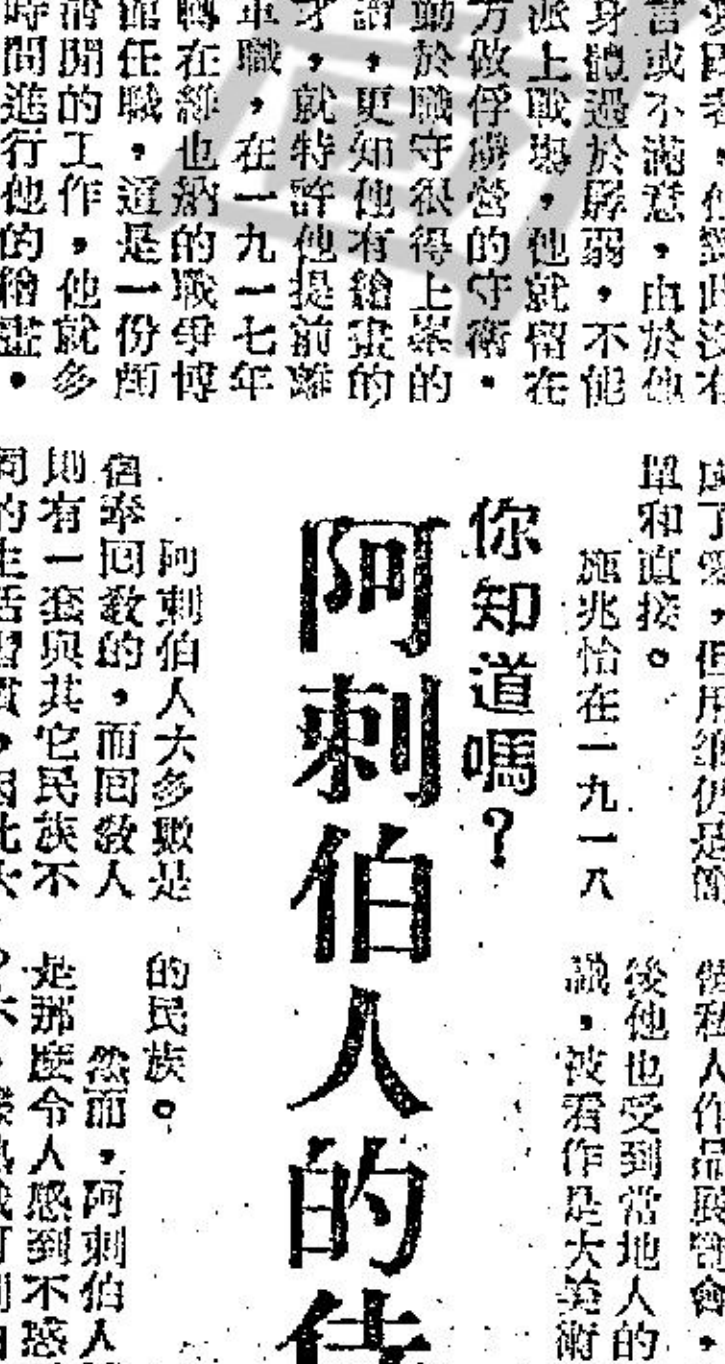 言或不滿意，由於他
身體過於孱弱，不能
派上戰場，他就留在
方做俘虜營的守衛。
動於職守很得上峯的
，更知他有繪畫的
才，就特許他提前離
軍職，在一九一七年
轉在維也納的戰爭博
館任職，這是一份頗
清閒的工作，他就多
時間進行他的繪畫。
了愛，但用筆仍是簡
單和直接。
施兆恰在一九一八
個私人作品展覽會，
後他也受到當地人的
議，被看作是大美術
你知道嗎？
阿剌伯人的待
阿剌伯人大多數是
信奉回教的，而回教人
則有一套與其它民族不
同的生活習慣，因此
的民族。
然而，阿剌伯人
是那麼令人感到不惑